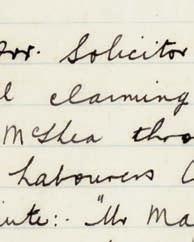 Solicitor
claiming
McShea thro
Labourers
"Mr Ma